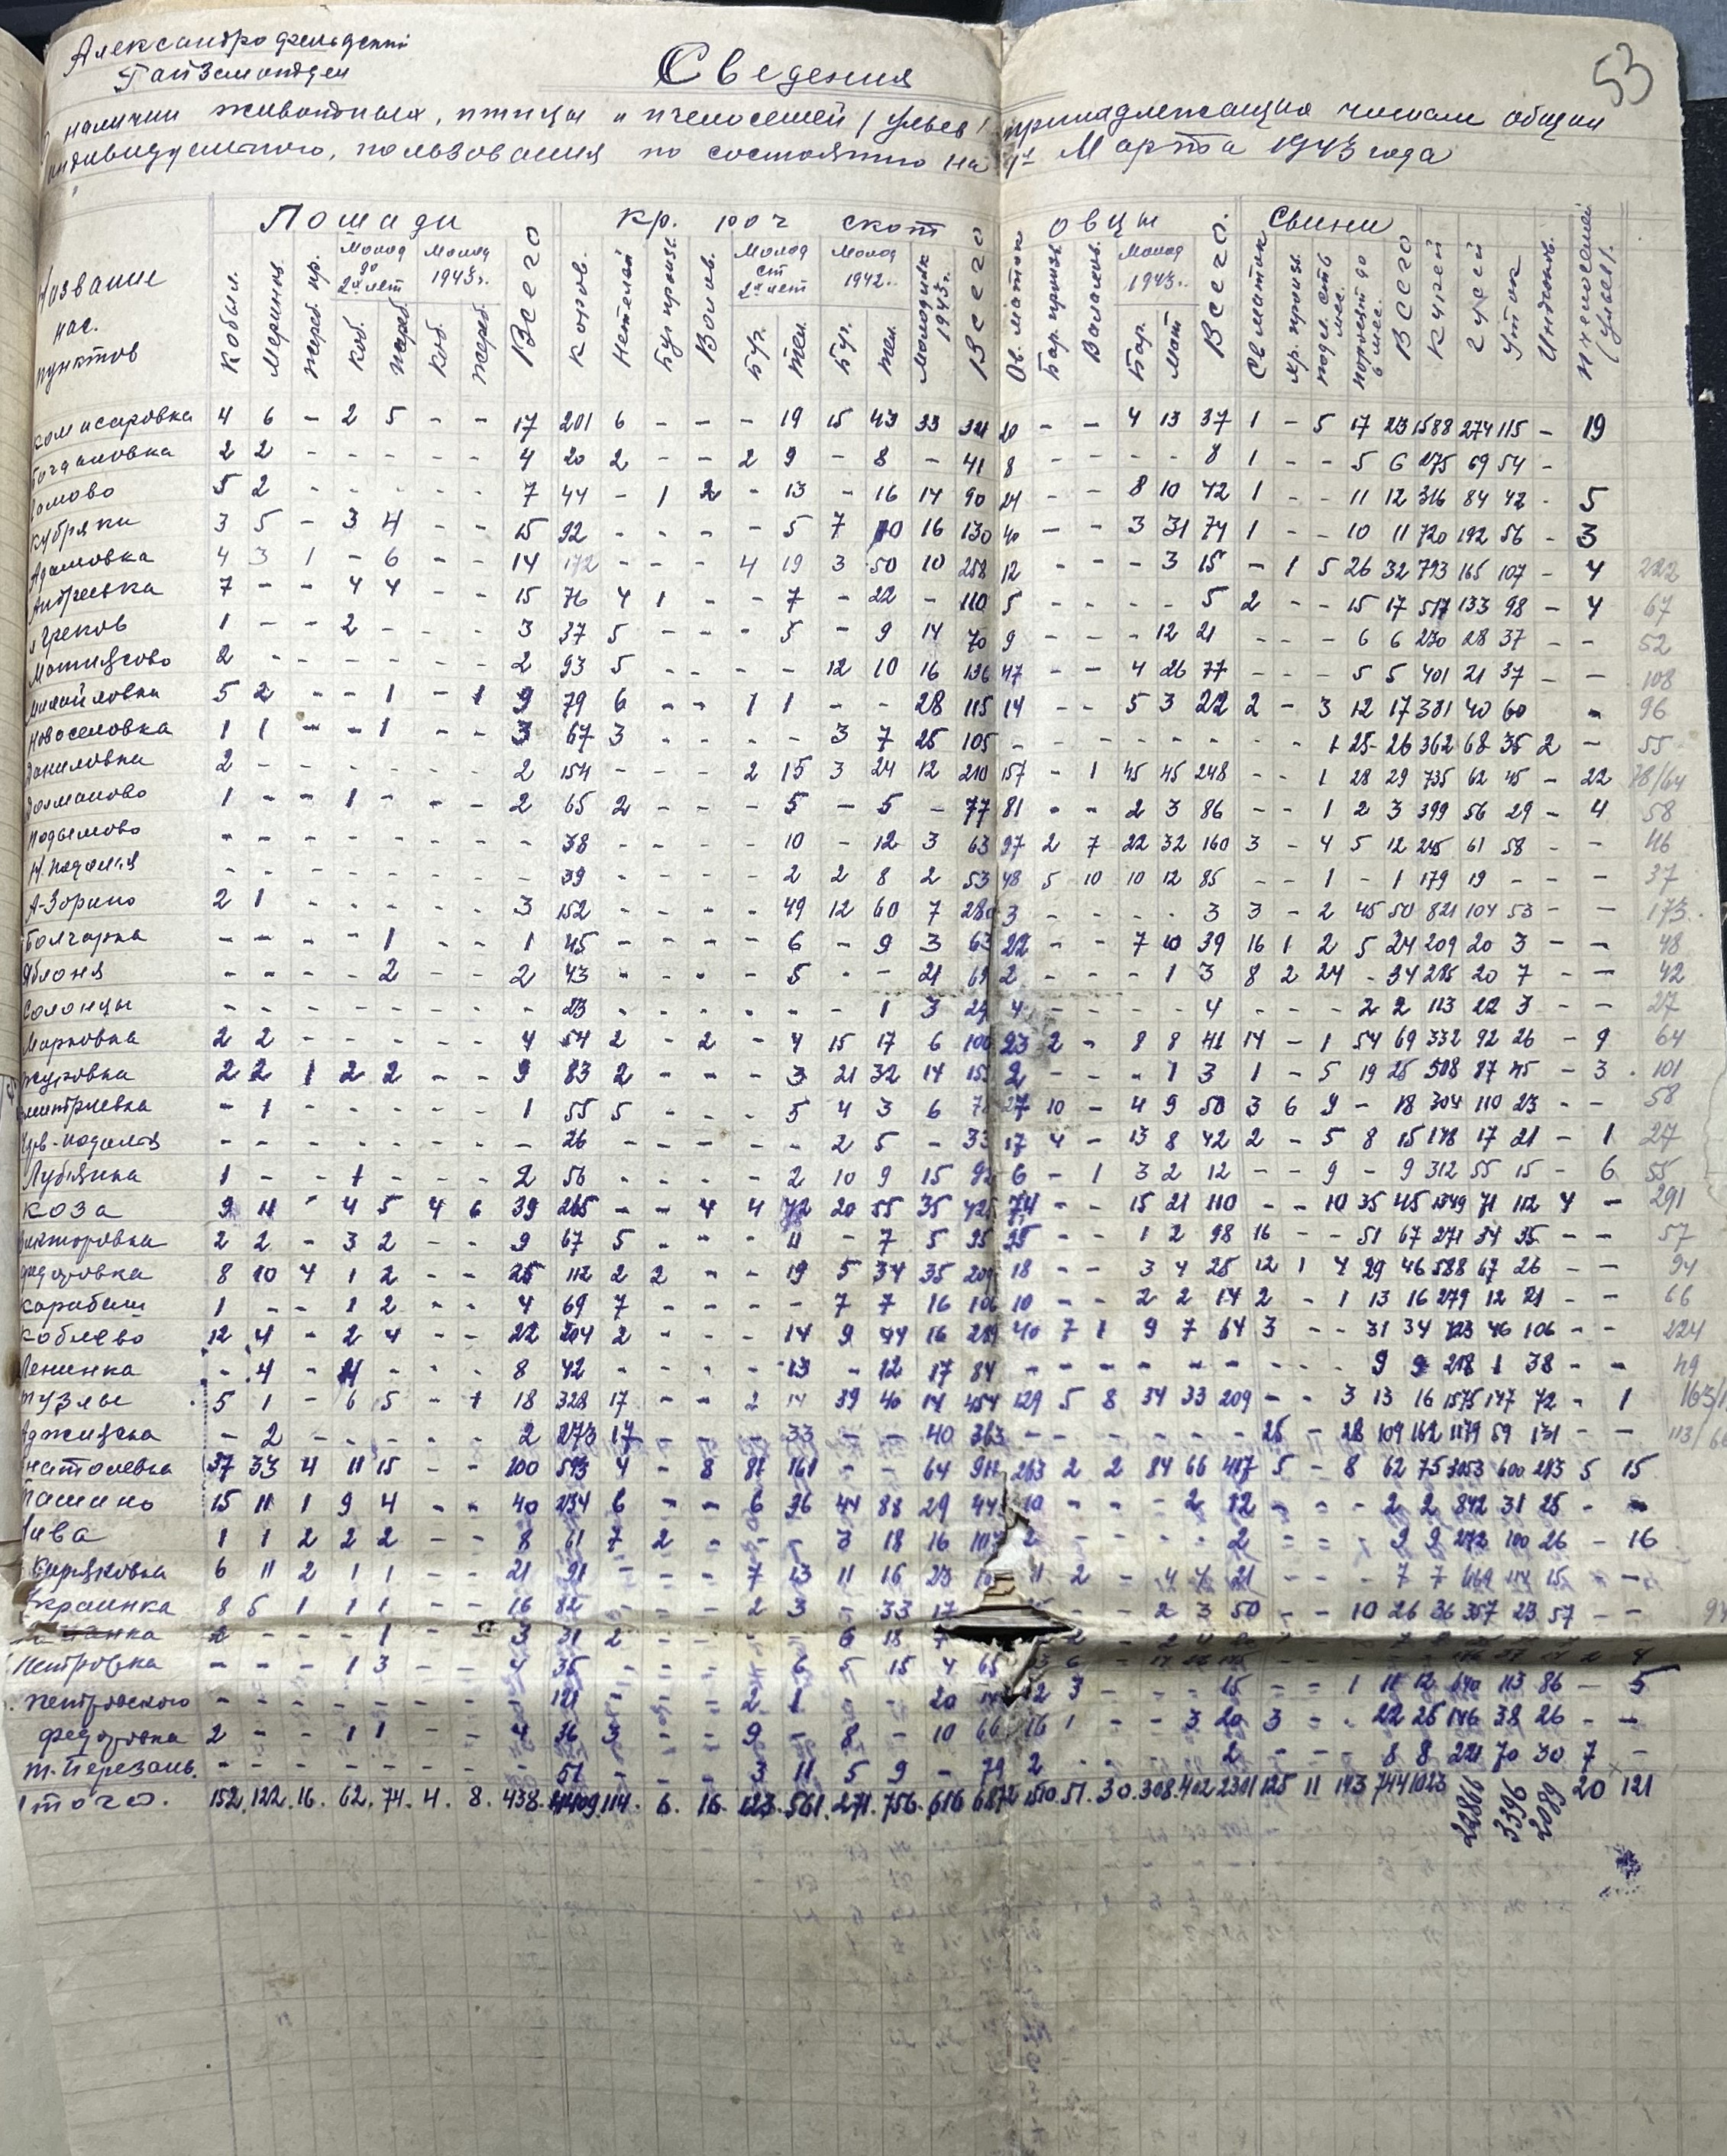 53
Александрофельдский
Гайзамтдеи
Сведения
наличии животных, птицы и пчелосемей / ульев / принадлежащих членам общин
индивидуального, пользования по состоянию на 1 Марта 1943 года
Название нас. пунктов
Лошади
Кр. рог скот
Овцы
Свиньи
Молод до 2х лет
Молод 1943г.
Молод ст 2х лет
Молод 1942г.
Молод 1943г.
Кобыл. Меринов Жереб. пр. Коб. Жереб. Коб. Жереб. Всего Коров. Нетелей Буг. произв. Волов. Буг. Тел. Буг. Тел. Молодняк 1943г. Всего Ов. маток Бар. произв. Валахов. Бар. Мат. Всего. Св. маток Хр. произв. подсв. ст 6 мес. поросят до 6 мес. Всего Курей Гусей Уток Индюков. Пчелосемей (ульев).
Комисаровка 4 6 - 2 5 - - 17 201 6 - - - 19 15 43 33 321 20 - - 4 13 37 1 - 5 17 23 1588 274 115 - 19
Богдановка 2 2 - - - - - 4 20 2 - - 2 9 - 8 - 41 8 - - - - 8 1 - - 5 6 275 69 54 -
5 2 - - - - - 7 44 - 1 2 - 13 - 16 14 90 24 - - 8 10 42 1 - - 11 12 316 84 42 - 5
Кубряки 3 5 - 3 4 - - 15 92 - - - - 5 7 10 16 130 40 - - 3 31 74 1 - - 10 11 720 192 56 - 3
Адамовка 4 3 1 - 6 - - 14 172 - - - 4 19 3 50 10 258 12 - - - 3 15 - 1 5 26 32 793 165 107 - 4 222
Андреевка 7 - - 4 4 - - 15 76 4 1 - - 7 - 22 - 110 5 - - - - 5 2 - - 15 17 517 133 98 - 4 67
Греков 1 - - 2 - - - 3 37 5 - - - 5 - 9 14 70 9 - - - 12 21 - - - 6 6 230 28 37 - - 52
Матиясово 2 - - - - - - 2 93 5 - - - - 12 10 16 136 47 - - 4 26 77 - - - 5 5 401 21 37 - - 108
Михайловка 5 2 - - 1 - 1 9 79 6 - - 1 1 - - 28 115 14 - - 5 3 22 2 - 3 12 17 381 40 60 - 96
Новоселовка 1 1 - - 1 - - 3 67 3 - - - - 3 7 25 105 - - - - - - - - 1 25 26 362 68 35 2 - 55
Даниловка 2 - - - - - - 2 154 - - - 2 15 3 24 12 210 157 - 1 45 45 248 - - 1 28 29 735 62 45 - 22 78/64
Долманово 1 - - 1 - - - 2 65 2 - - - 5 - 5 - 77 81 - - 2 3 86 - - 1 2 3 399 56 29 - 4 58
Подымово - - - - - - - 38 - - - - 10 - 12 3 63 97 2 7 22 32 160 3 - 4 5 12 245 61 58 - - 46
Н. Подолия - - - - - - - 39 - - - - 2 2 8 2 53 48 5 10 10 12 85 - - 1 - 1 179 19 - - - 37
А-Зорино 2 1 - - - - - 3 152 - - - - 49 12 60 7 280 3 - - - - 3 3 - 2 45 50 821 104 53 - - 173
Болгарка - - - - 1 - - 1 45 - - - - 6 - 9 3 63 22 - - 7 10 39 16 1 2 5 24 209 20 3 - - 48
Яблоня - - - - 2 - - 2 43 - - - - 5 - - 21 69 2 - - - 1 3 8 2 24 - 34 285 20 7 - - 42
Солонцы - - - - - - - 23 - - - - - - 1 3 27 4 - - - - 4 - - - 2 2 113 22 3 - - 27
Марковка 2 2 - - - - - 4 54 2 - 2 - 4 15 17 6 100 23 2 - 8 8 41 14 - 1 54 69 332 92 26 - 9 64
Журовка 2 2 1 2 2 - - 9 83 2 - - - 3 21 32 14 155 2 - - - 1 3 1 - 5 19 25 508 87 45 - 3 101
Дмитриевка - 1 - - - - - 1 55 5 - - - 5 4 3 6 78 27 10 - 4 9 50 3 6 9 - 18 304 110 23 - - 58
- - - - - - - 26 - - - - - 2 5 - 33 17 4 - 13 8 42 2 - 5 8 15 178 17 21 - 1 27
Лубянка 1 - - 1 - - - 2 56 - - - - 2 10 9 15 92 6 - 1 3 2 12 - - 9 - 9 312 55 15 - 6 55
Коза 9 11 - 4 5 4 6 39 265 - - 4 4 42 20 55 35 425 74 - - 15 21 110 - - 10 35 45 1349 71 112 4 - 291
Викторовка 2 2 - 3 2 - - 9 67 5 - - - 11 - 7 5 95 95 - - 1 2 98 16 - - 51 67 271 34 35 - - 57
Федоровка 8 10 4 1 2 - - 25 112 2 2 - - 19 5 34 35 209 18 - - 3 4 25 12 1 4 29 46 588 67 26 - - 94
Карабаш 1 - - 1 2 - - 4 69 7 - - - - 7 7 16 106 10 - - 2 2 14 2 - 1 13 16 279 12 21 - - 66
Коблево 12 4 - 2 4 - - 22 204 2 - - - 14 9 44 16 289 40 7 1 9 7 64 3 - - 31 34 723 46 106 - - 224
Ленинка - 4 - 4 - - - 8 42 - - - - 13 - 12 17 84 - - - - - - - - - 9 9 218 1 38 - - 49
Тузлы 5 1 - 6 5 - 1 18 328 17 - - 2 14 39 40 14 454 129 5 8 34 33 209 - - 3 13 16 1575 147 72 - 1
Аджияска - 2 - - - - - 2 273 17 - - - 33 - - 40 363 - - - - - - 25 - 28 109 162 1179 59 131 - -
Анатолевка 37 33 4 11 15 - - 100 593 4 - 8 81 161 - - 64 911 263 2 2 84 66 417 5 - 8 62 75 3053 600 213 5 15
Ташино 15 11 1 9 4 - - 40 234 6 - - 6 36 44 88 29 443 10 - - - 2 12 - - - 2 2 842 31 25 - -
Нива 1 1 2 2 2 - - 8 61 7 2 - - - 3 18 16 107 2 - - - - 2 - - - 9 9 272 100 26 - 16
Киряковка 6 11 2 1 1 - - 21 91 - - - 7 13 11 16 23 11 2 - 4 4 21 - - - 7 7 469 114 15 - -
Украинка 8 5 1 1 1 - - 16 82 - - - 2 3 - 33 17 - - 2 3 50 - - 10 26 36 357 23 57 - -
2 - - - 1 - - 3 31 2 - - - - 6 18
Петровка - - - 1 3 - - 4 35 - - - - 6 5 15 4 65
Петровского - - - - - - - - 121 - - - 2 1 - - 20 12 3 - - - 15 - - 1 11 12 640 113 86 - 5
Федоровка 2 - - 1 1 - - 4 36 3 - - 9 - 8 - 10 66 16 1 - - 3 20 3 - - 22 25 146 38 26 - -
Т. Березань. - - - - - - - - 51 - - - 3 11 5 9 - 79 2 - - - - 2 - - - 8 8 221 70 30 7 -
Итого. 152. 122. 16. 62. 74. 4. 8. 438. 4409 114. 6. 16. 123. 561. 271. 756. 616 6872 1510. 51. 30. 308. 402 2301 125 11 143 744 1023 22866 3396 2089 20 121